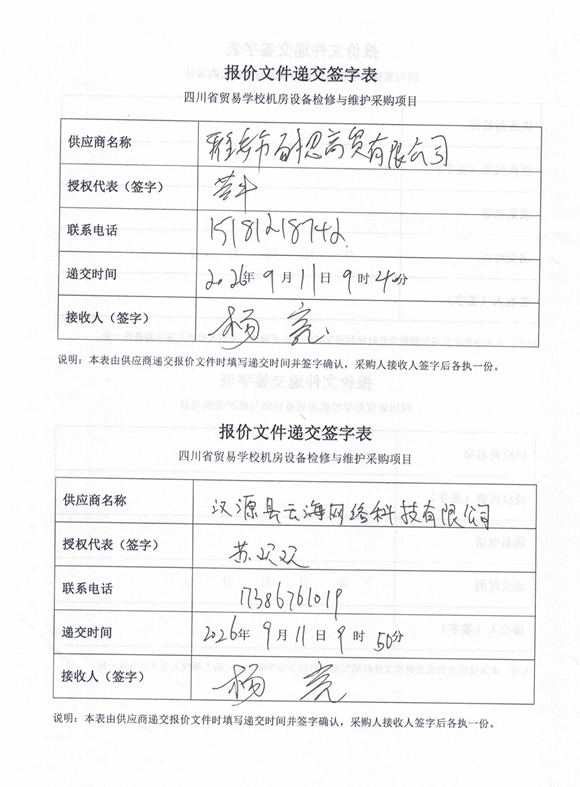 报价文件递交签字表
四川省贸易学校机房设备检修与维护采购项目
供应商名称 雅安市百思商贸有限公司
授权代表（签字）
联系电话 15181218742
递交时间 2026年 9 月 11 日 9 时 40分
接收人（签字） 杨亮
说明：本表由供应商递交报价文件时填写递交时间并签字确认，采购人接收人签字后各执一份。
报价文件递交签字表
四川省贸易学校机房设备检修与维护采购项目
供应商名称 汉源县云海网络科技有限公司
授权代表（签字） 苏双双
联系电话 17386761019
递交时间 2026年 9 月 11 日 9 时 50分
接收人（签字） 杨亮
说明：本表由供应商递交报价文件时填写递交时间并签字确认，采购人接收人签字后各执一份。